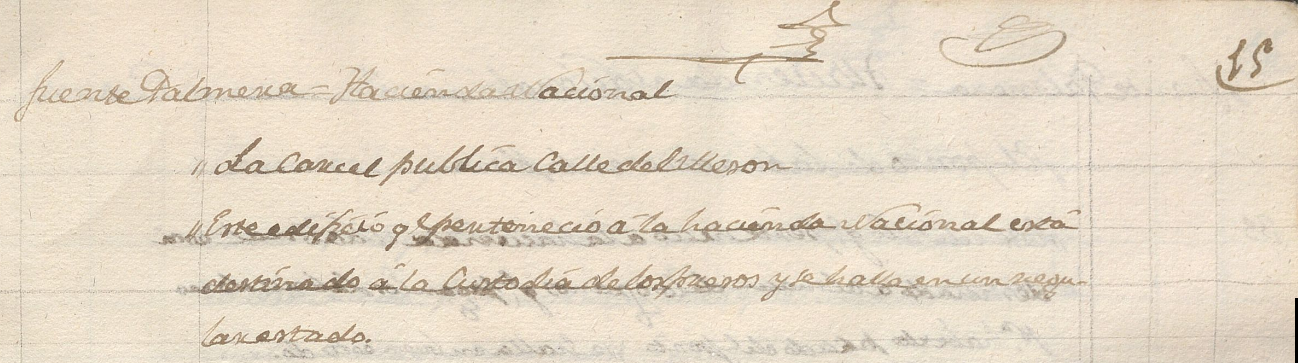 15
fuente Palmera = Hacienda Nacional
" La Carcel publica Calle del Meson
" Este edificio q.e perteneció á la hacienda Nacional está
destinado á la Custodia de los presos y se halla en un regu-
lar estado.